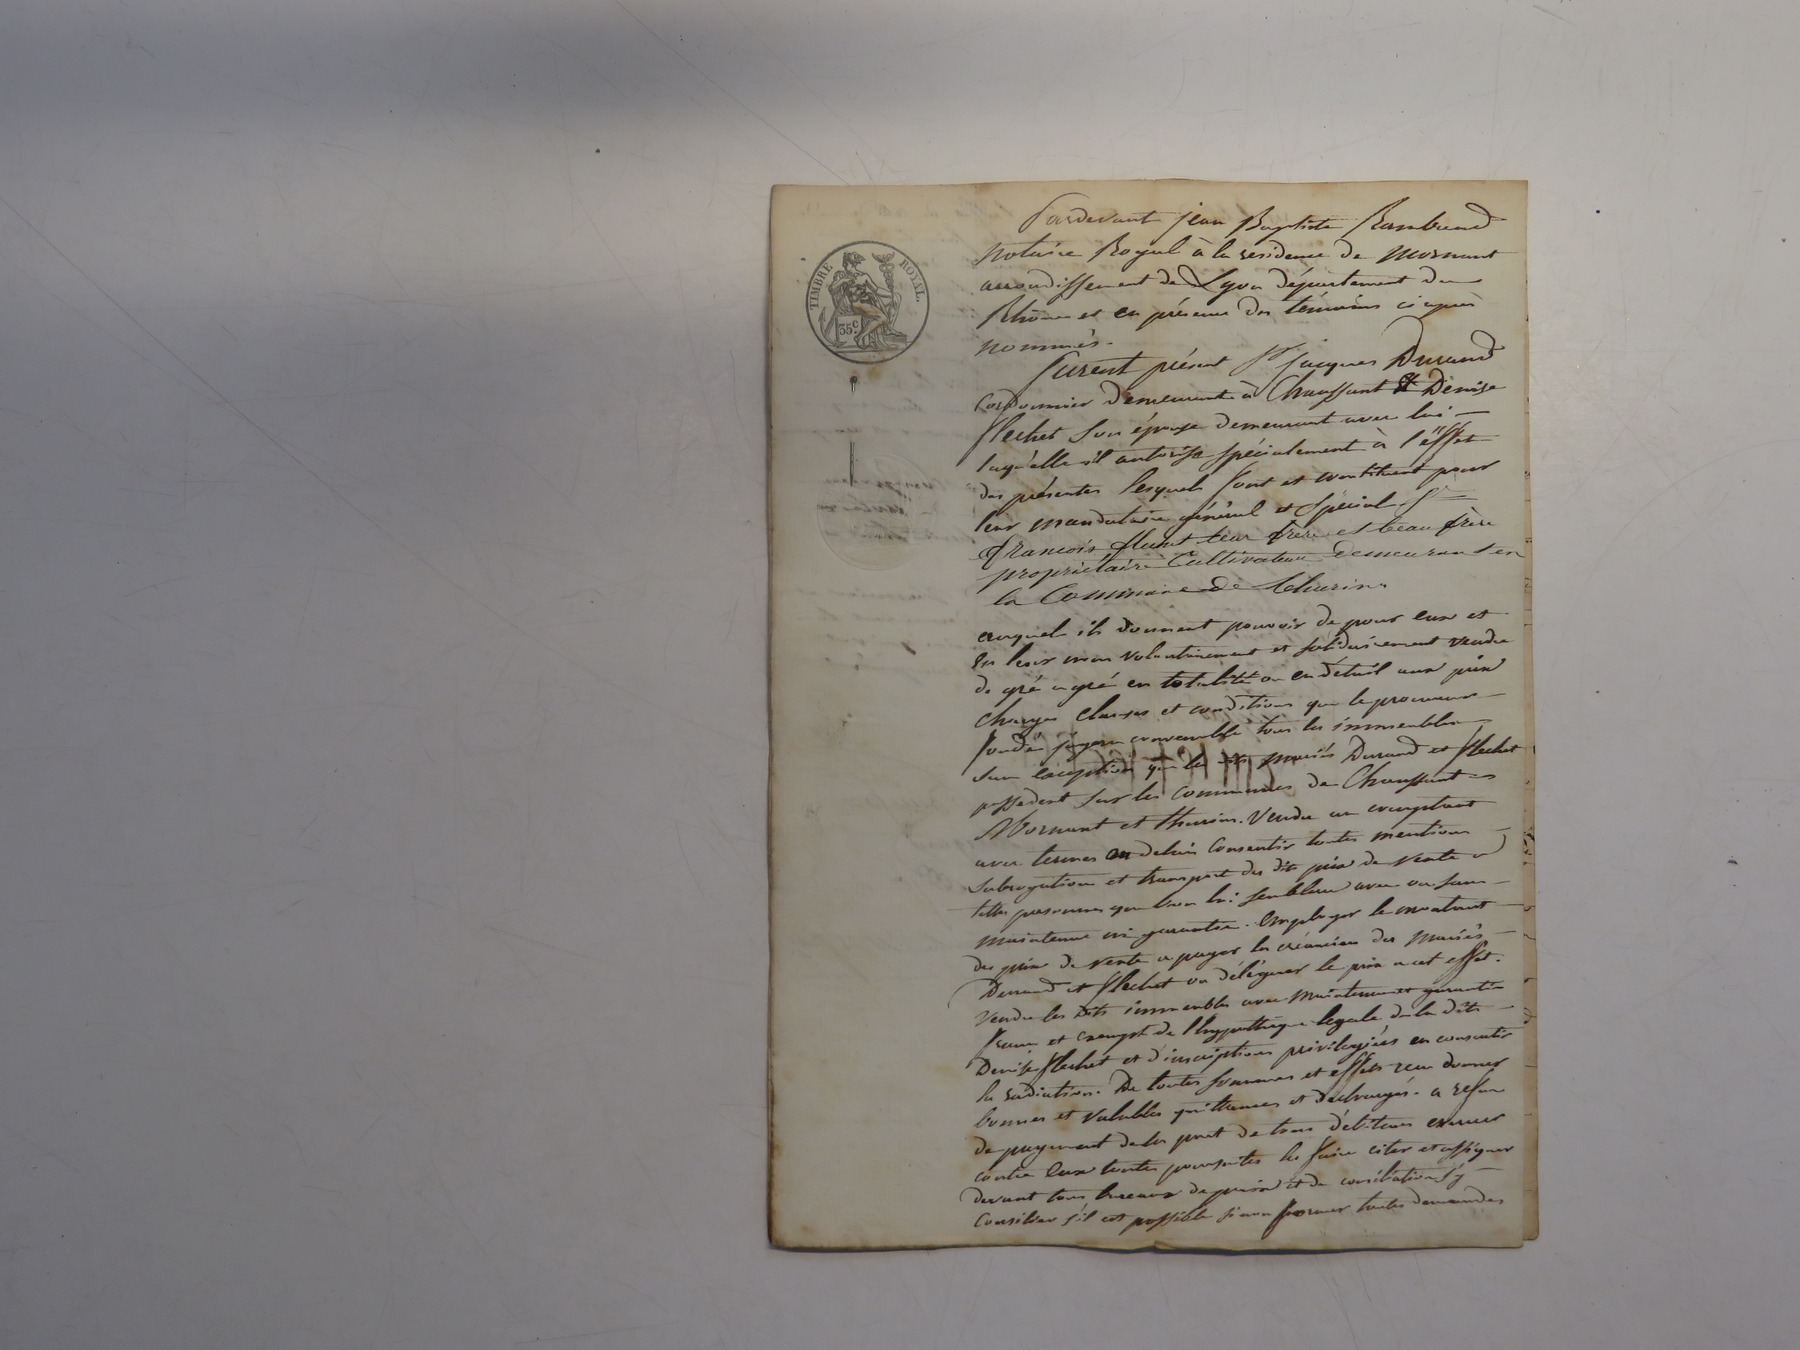 TIMBRE ROYAL.
35c.
Pardevant jean Baptiste Rambaud
notaire Royal à la residence de Mornant
arrondissement de Lyon département du
Rhône et en présence des témoins ci après
nommés.
furent présent Sr jacques Durand
Cordonnier demeurant à Chaussant & Denise
flechet son épouse demeurant avec lui
laquelle il autorise spécialement à l'effet
des présentes lesquels font et constituent pour
leur mandataire général et spécial Sr
françois flechet leur frere et beau frere
propriétaire Cultivateur demeurant en
la Commune de thurins
auquel ils donnent pouvoir de pour eux et
en leur nom volontairement et solidairement vendre
de gré a gré en totalité ou en détail aux prix
charges clauses et conditions que le procureur
fondé jugera convenable tous les immeubles
sans exception que les dits mariés Durand et flechet
possedent sur les communes de Chaussant
Mornant et thurins. Vendre au comptant
avec termes ou delais Consentir toutes mentions
subrogations et transport des dits prix de vente a
telles personnes que bon lui semblera avec ou sans
maintenue ni garantie. Employer le montant
des prix de vente a payer les créanciers des mariés
Durand et flechet ou déléguer le prix a cet effet.
Vendre les dits immeubles avec maintenue et garantie
franc et exempt de l'hypothèque legale de la dite
Denise flechet et d'inscriptions privilegiées en consentir
la radiation. De toutes sommes et effets recu donner
bonnes et valables quittances et decharges. a refus
de payement de la part de tous débiteurs exercer
contre eux toutes poursuites les faire citer et assigner
devant tous bureaux de paix et de conciliation s'y
Concilier s'il est possible sinon former toutes demandes